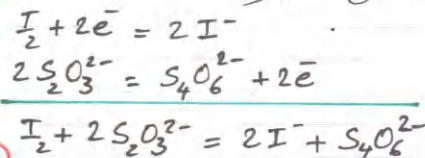 I₂ + 2e⁻ = 2I⁻
2S₂O₃²⁻ = S₄O₆²⁻ + 2e⁻
I₂ + 2S₂O₃²⁻ = 2I⁻ + S₄O₆²⁻